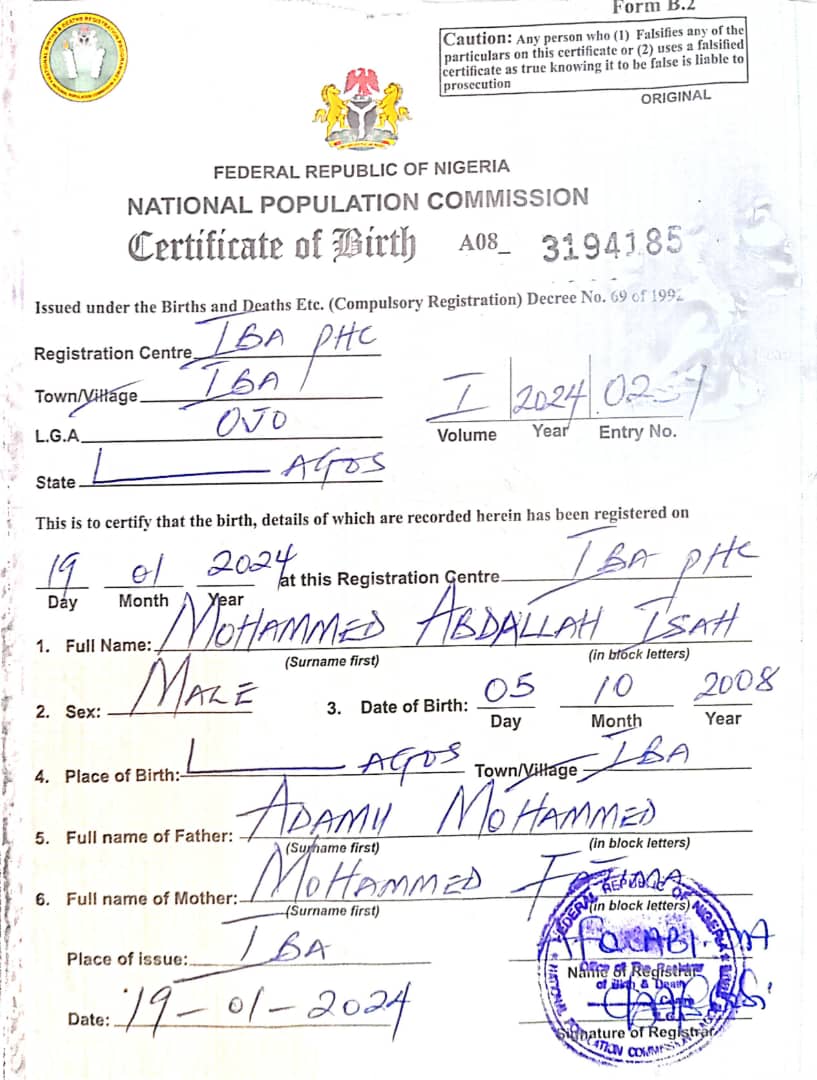 Form B.2
Caution: Any person who (1) Falsifies any of the
particulars on this certificate or (2) uses a falsified
certificate as true knowing it to be false is liable to
prosecution
ORIGINAL
FEDERAL REPUBLIC OF NIGERIA
NATIONAL POPULATION COMMISSION
Certificate of Birth A08_ 3194185
Issued under the Births and Deaths Etc. (Compulsory Registration) Decree No. 69 of 1992
Registration Centre IBA PHC
Town/Village IBA
L.G.A OJO
State LAGOS
I 2024
Volume Year Entry No.
This is to certify that the birth, details of which are recorded herein has been registered on
19 01 2024 at this Registration Centre IBA PHC
Day Month Year
1. Full Name: MOHAMMED ABDALLAH ISAH
(Surname first) (in block letters)
2. Sex: MALE 3. Date of Birth: 05 10 2008
Day Month Year
4. Place of Birth: LAGOS Town/Village IBA
5. Full name of Father: ADAMU MOHAMMED
(Surname first) (in block letters)
6. Full name of Mother: MOHAMMED FATIMA
(Surname first) (in block letters)
Place of issue: IBA
Name of Registrar
Date: 19-01-2024
Signature of Registrar
FEDERAL REPUBLIC OF NIGERIA
NATIONAL POPULATION COMMISSION